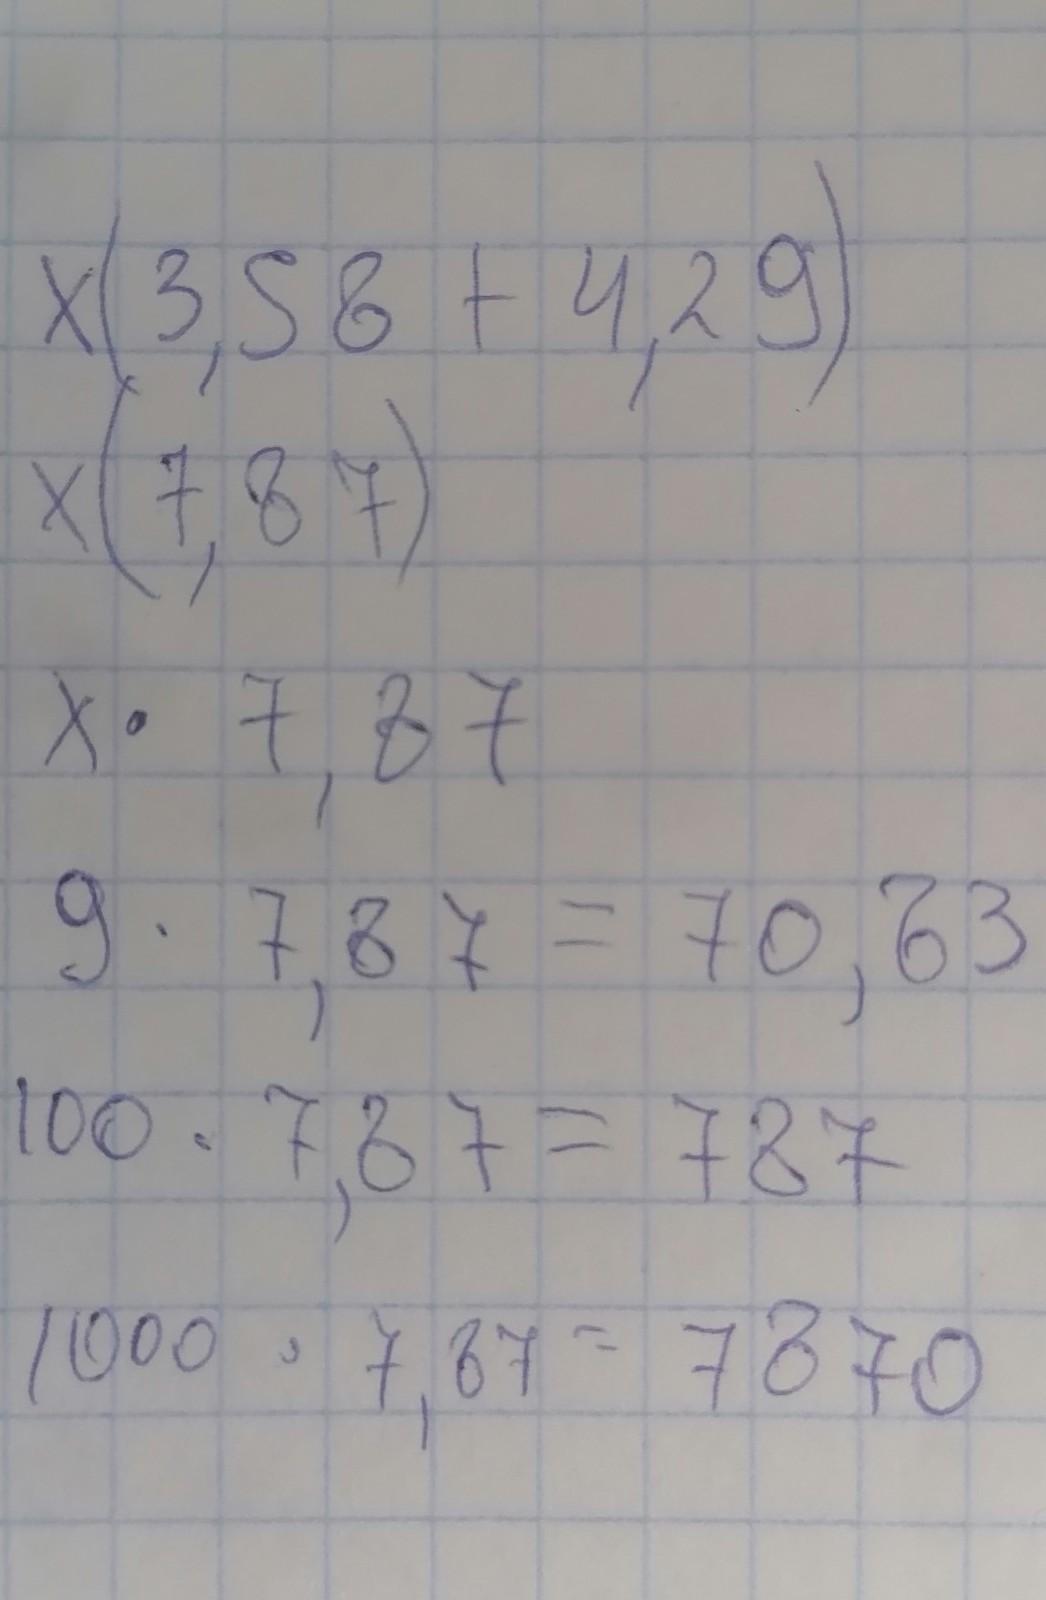 x(3,58 + 4,29)
x(7,87)
x · 7,87
9 · 7,87 = 70,83
100 · 7,87 = 787
1000 · 7,87 = 7870